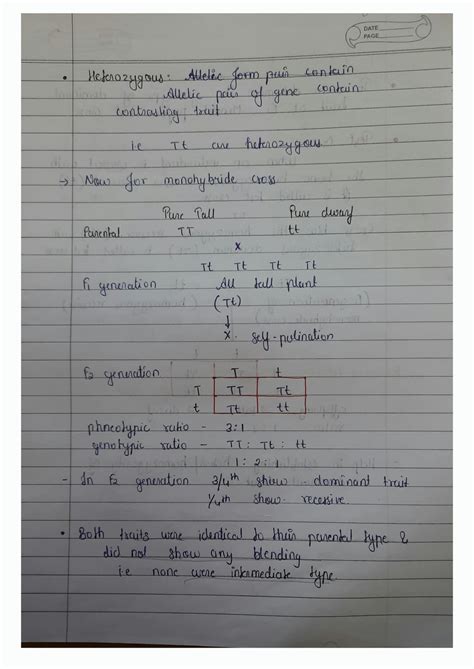 DATE
PAGE
• Heterozygous: Allelic form pair contain
Allelic pair of gene contain
contrasting trait
i.e Tt are heterozygous
→ Now for monohybride cross
Pure Tall Pure dwarf
Parental TT tt
x
Tt Tt Tt Tt
F1 generation All tall plant
(Tt)
↓
x self-pulination
F2 generation T t
T TT Tt
t Tt tt
phneotypic ratio - 3:1
genotypic ratio - TT : Tt : tt
1 : 2 : 1
- In F2 generation 3/4th show dominant trait
1/4th show recessive.
• Both traits were identical to their parental type &
did not show any blending
i.e none were intermediate type.